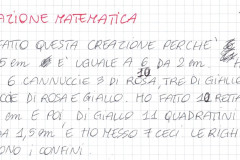 AZIONE MATEMATICA
FATTO QUESTA CREAZIONE PERCHÈ
5 cm È UGUALE A 6 DA 2 cm.
6 CANNUCCIE 3 DI ROSA, TRE DI GIALLO
DI ROSA E GIALLO. HO FATTO 10 RETTA
cm E POI DI GIALLO 11 QUADRATINI
DA 1,5 cm E HO MESSO 7 CECI LE RIGH
ONO I CONFINI